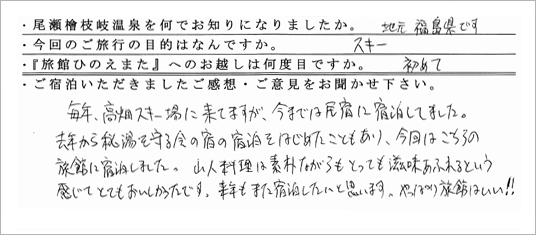 ・尾瀬檜枝岐温泉を何でお知りになりましたか。 地元 福島県です
・今回のご旅行の目的はなんですか。 スキー
・『旅館ひのえまた』へのお越しは何度目ですか。 初めて
・ご宿泊いただきましたご感想・ご意見をお聞かせ下さい。
毎年、高畑スキー場に来てますが、今までは民宿に宿泊してました。
去年から秘湯を守る会の宿の宿泊をはじめたこともあり、今回はこちらの
旅館に宿泊しました。山人料理は素朴ながらもとっても滋味あふれるという
感じでとてもおいしかったです。来年もまた宿泊したいと思います。やっぱり旅館はいい!!